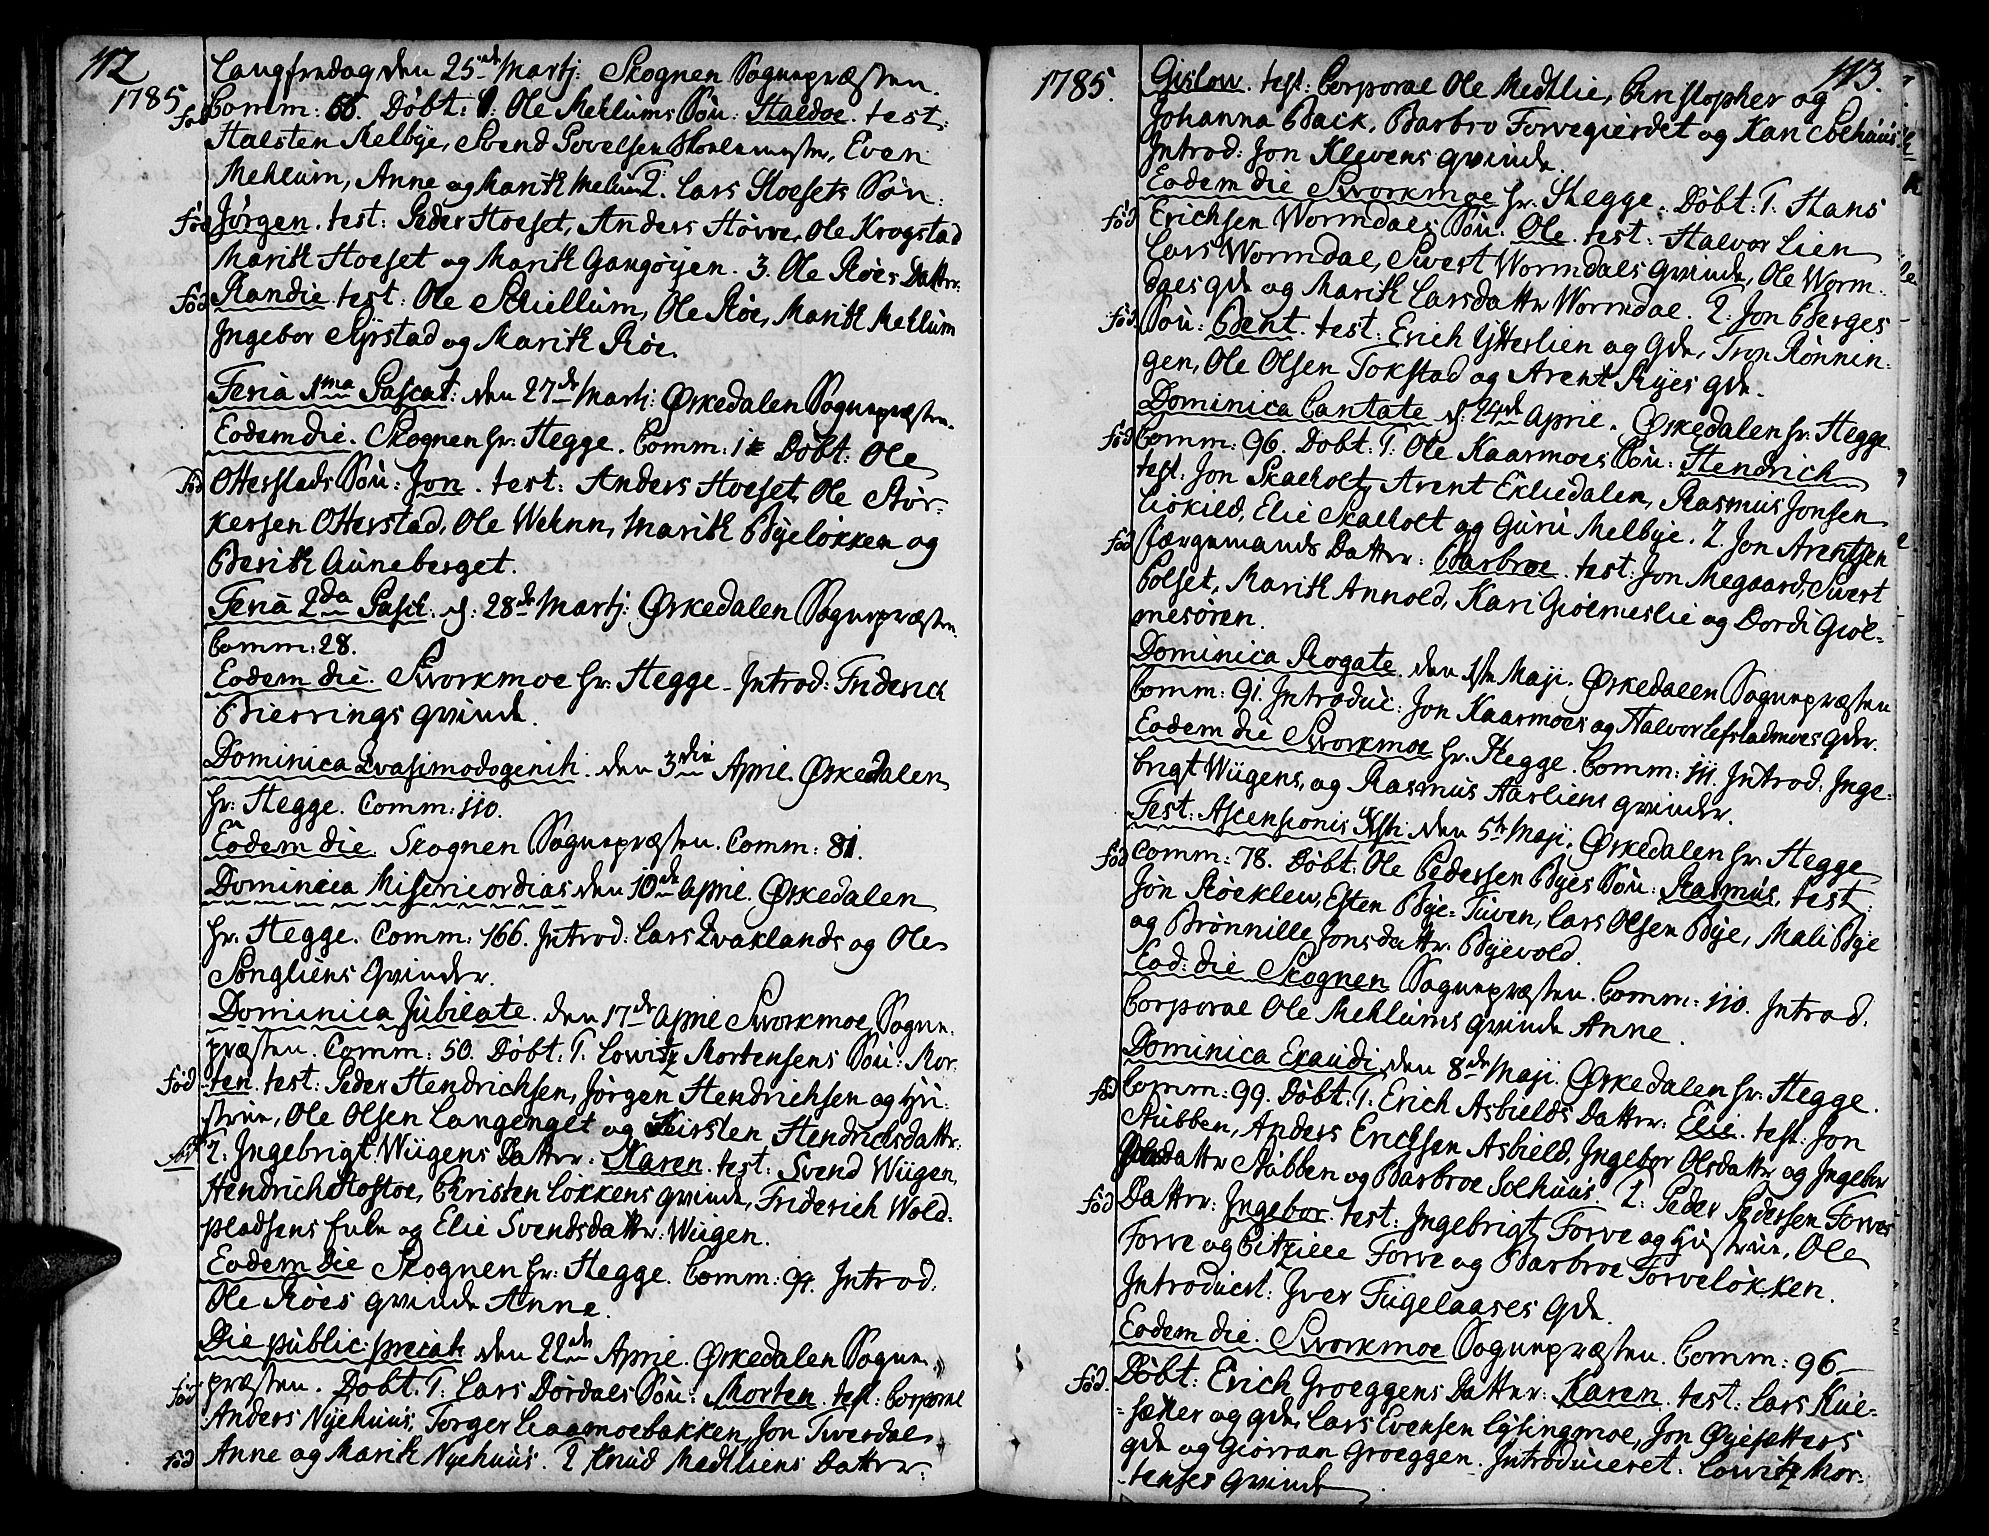 112
1785
Langfredag den 25de Martj: Skognen Sognepræsten.
Fød Comm: 66. Døbt: 1: Ole Mehlums Søn: Haldoe. test:
Halsten Melbye, Svend Povelsen Skolemester, Even
Mehlum, Anne og Marith Mehlum 2. Lars Hoesets Søn:
Fød Jørgen. test: Peder Hoeset, Anders Høvre, Ole Krogstad
Marith Hoeset og Marith Gangøyen. 3. Ole Røes Datter:
Fød Randie test: Ole Schiellum, Ole Røe, Marith Mehlum
Ingebor Syrstad og Marith Røe.
Feria 1ma Pascat: den 27de Martj: Ørkedalen Sognepræsten.
Eodem die. Skognen hr: Hegge. Comm: Døbt: Ole
Fød Otterstads Søn: Jon. test: Anders Hoeset, Ole Stør-
kersen Otterstad, Ole Wehnn, Marith Byeløkken og
Berith Auneberget.
Feria 2da Pasch: d: 28de Martj: Ørkedalen Sognepræsten.
Comm: 28.
Eodem die. Sworkmoe hr: Hegge. Introd: Friderich
Bierrings Qvinde.
Dominica Qvasimodogenith. den 3die April. Ørkedalen
hr: Hegge. Comm: 110.
Eodem die Skognen Sognepræsten. Comm: 81.
Dominica Misericordias den 10de April. Ørkedalen
hr: Hegge. Comm: 166. Introd: Lars Qvaklands og Ole
Songliens Qvinder.
Dominica Jubilate. den 17de April Sworkmoe Sogne-
præsten. Comm: 50. Døbt: 1. Lowitz Mortensens Søn: Mor-
Fød ten. test: Peder Hendrichsen, Jørgen Hendrichsen og Hu-
strue, Ole Olsen Langenget og Kirsten Hendrichsdatter.
2. Ingebrigt Wiigens Datter. Karen. test: Svend Wiigen,
Hendrich Hostoe, Christen Løkkens Qvinde, Friderich Wold-
pladsens fule og Elie Svendsdatter: Wiigen.
Eodem Die Skognen hr: Hegge. Comm: 99. Introd.
Ole Røes Qvinde Anne.
Die public: precat: den 22de April. Ørkedalen Sogne-
præsten. Døbt. 1: Lars Dørdals Søn: Morten. test: Corporal
Fød Anders Nyehuus, Torger Caamoebakken, Jon Tverdal,
Fød Anne og Marith Nyehuus. 2 Knud Medtliens Datter:
113.
1785.
Gislow. test: Corporal Ole Medtlie, Christopher og
Johanna Back, Barbro Forvegierdet og Kari Solhuus.
Introd: Jon Klevens Qvinde.
Eodem die Sworkmoe hr: Hegge. Døbt: 1. Hans
Fød Erichsen Wormdals Søn. Ole. test: Halvor Lien
Lars Wormdal, Sivert Wormdals Qvinde, Ole Worm-
dals Qde og Marith Larsdatter Wormdal. 2. Jon Berges
Fød Søn: Bent. test: Erich Ytterlien og Qde, Tron Rønnin-
gen, Ole Olsen Tokstad og Arent Ryes Qde.
Dominica Cantate d: 24de April. Ørkedalen hr: Hegge
Fød Comm: 96. Døbt: 1. Ole Kaarmoes Søn: Hendrich
test: Jon Skalholt, Arent Ekliedalen, Rasmus Jonsen
Liøkild, Elie Skalholt og Guru Melbye. 2. Jon Arentsen
Fød færgemands Datter: Barbroe. test: Jon Megaard, Sivert
Solset, Marith Annold, Kari Giølmeslie og Dordi Giøl-
mesøren.
Dominica Rogate. den 1ste Maji. Ørkedalen Sognepræsten
Comm: 91. Introduc: Jon Kaarmoes og Halvor Lefstadmoes Qder.
Eodem die Sworkmoe hr: Hegge. Comm: 111. Introd: Inge-
brigt Wiigens, og Rasmus Aarliens Qvinder.
Fest: Ascensionis Xsti. den 5te Maji. Ørkedalen hr: Hegge
Fød Comm: 78. Døbt: Ole Pedersen Byes Søn: Rasmus. test:
Jon Røeklew, Esten Bye-Tuven, Lars Olsen Bye, Mali Bye
og Brønnille Jonsdatter. Byevold.
Eod: die Skognen Sognepræsten. Comm: 110. Introd.
Corporal Ole Mehlums Qvinde Anne.
Dominica Exaudi. den 8de Maji. Ørkedalen hr: Hegge.
Fød Comm: 99. Døbt. 1. Erich Asbiølds Datter: Elie. test: Jon
Stubben, Anders Erichsen Asbield, Ingebor Olsdatter og Ingebor
Stubben og Barbroe Solhuus. 2: Peder Pedersen Forves
Fød Datter: Ingebor. test: Ingebrigt Forve og Hustrue, Ole
Forve og Citzille Forve og Barbroe Forveløkken.
Introducit: Iver Fugelaases Qde.
Eodem die. Sworkmoe Sognepræsten. Comm: 96-
Fød. Døbt: Erich Groeggens Datter: Karen. test: Lars Kul-
sætter og qde, Lars Evensen Lysingmoe, Jon Øyesætters
qde og Giørran Groeggen. Introduceret: Lowitz Mor-
tenses Qvinde